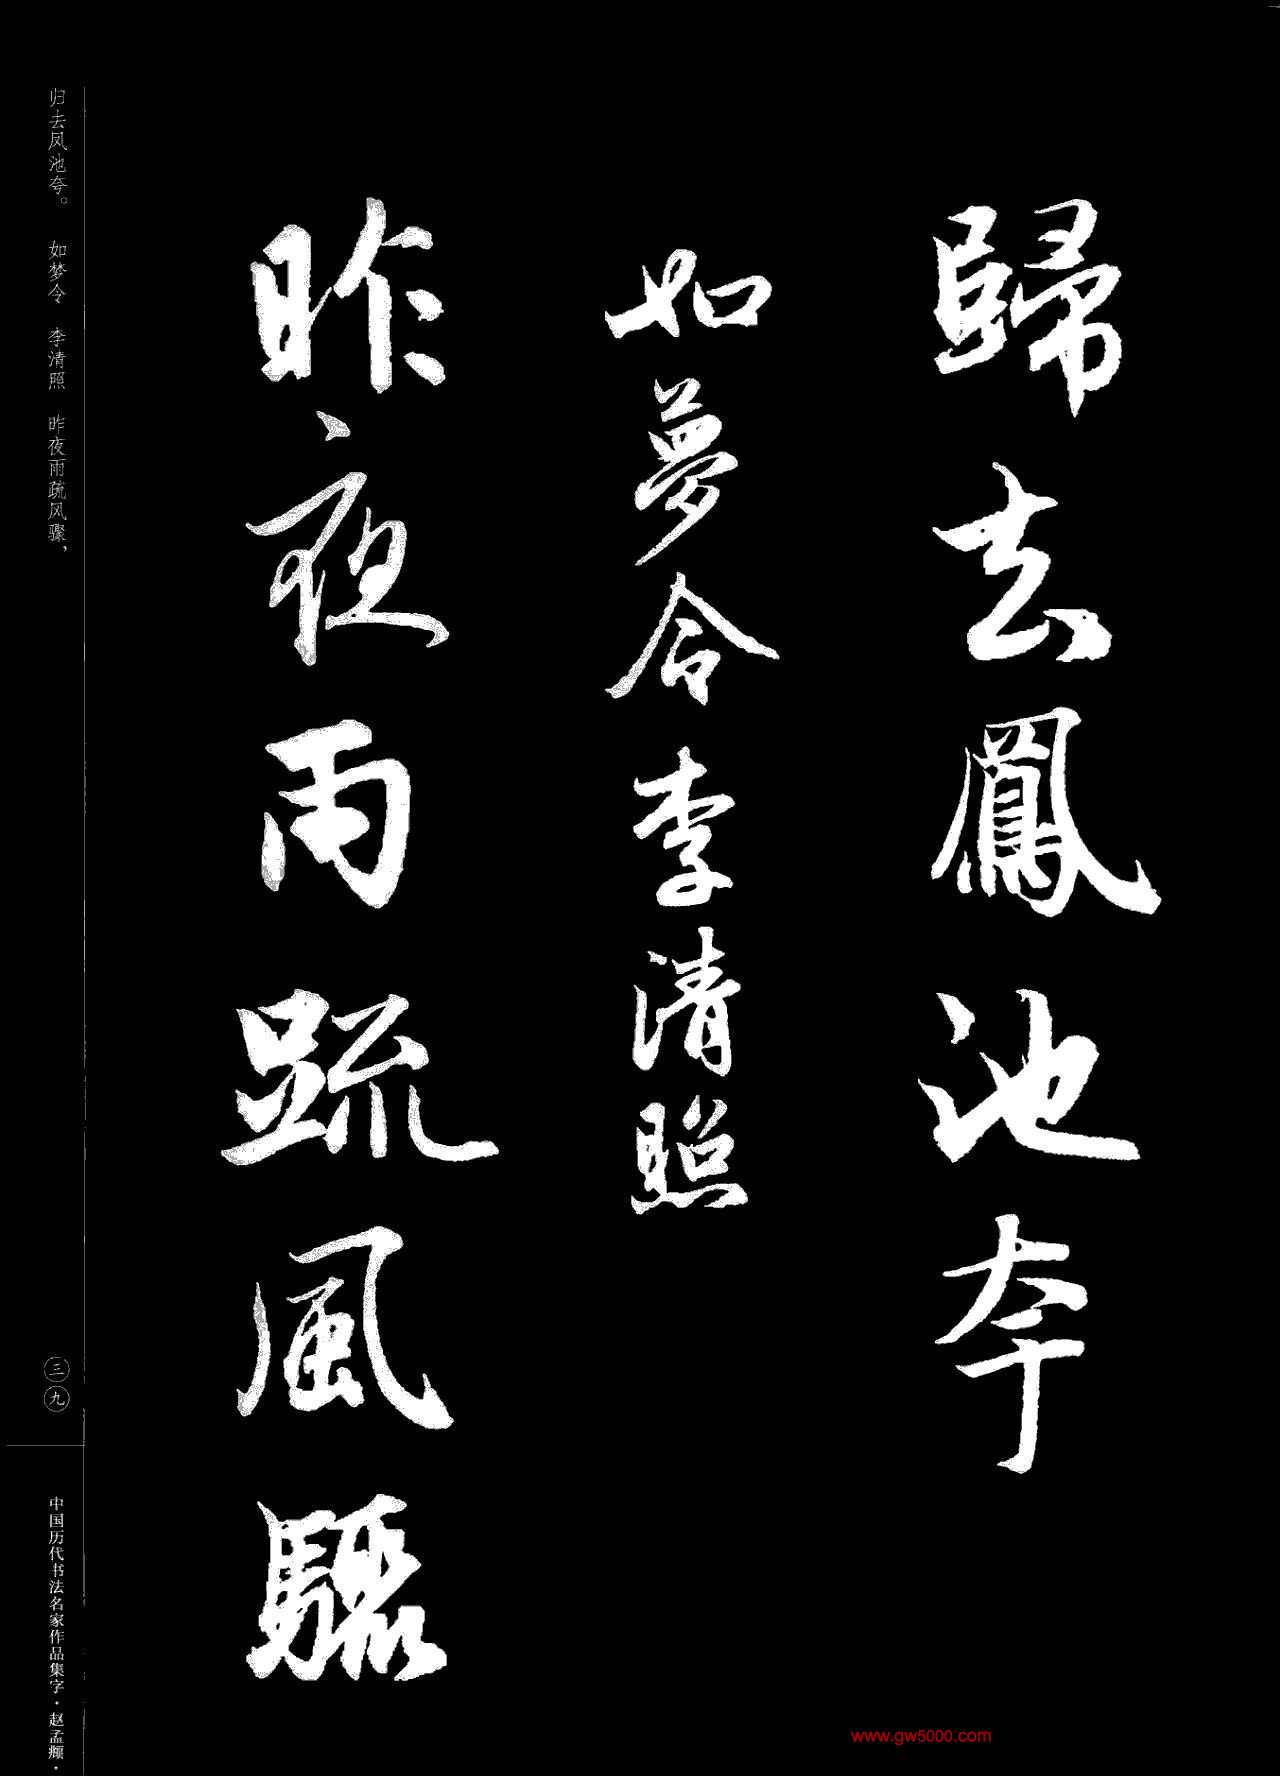 歸去鳳池夸
如夢令 李清照
昨夜雨疏風驟
归去凤池夸。 如梦令 李清照 昨夜雨疏风骤，
三九
中国历代书法名家作品集字·赵孟頫·
www.gw5000.com